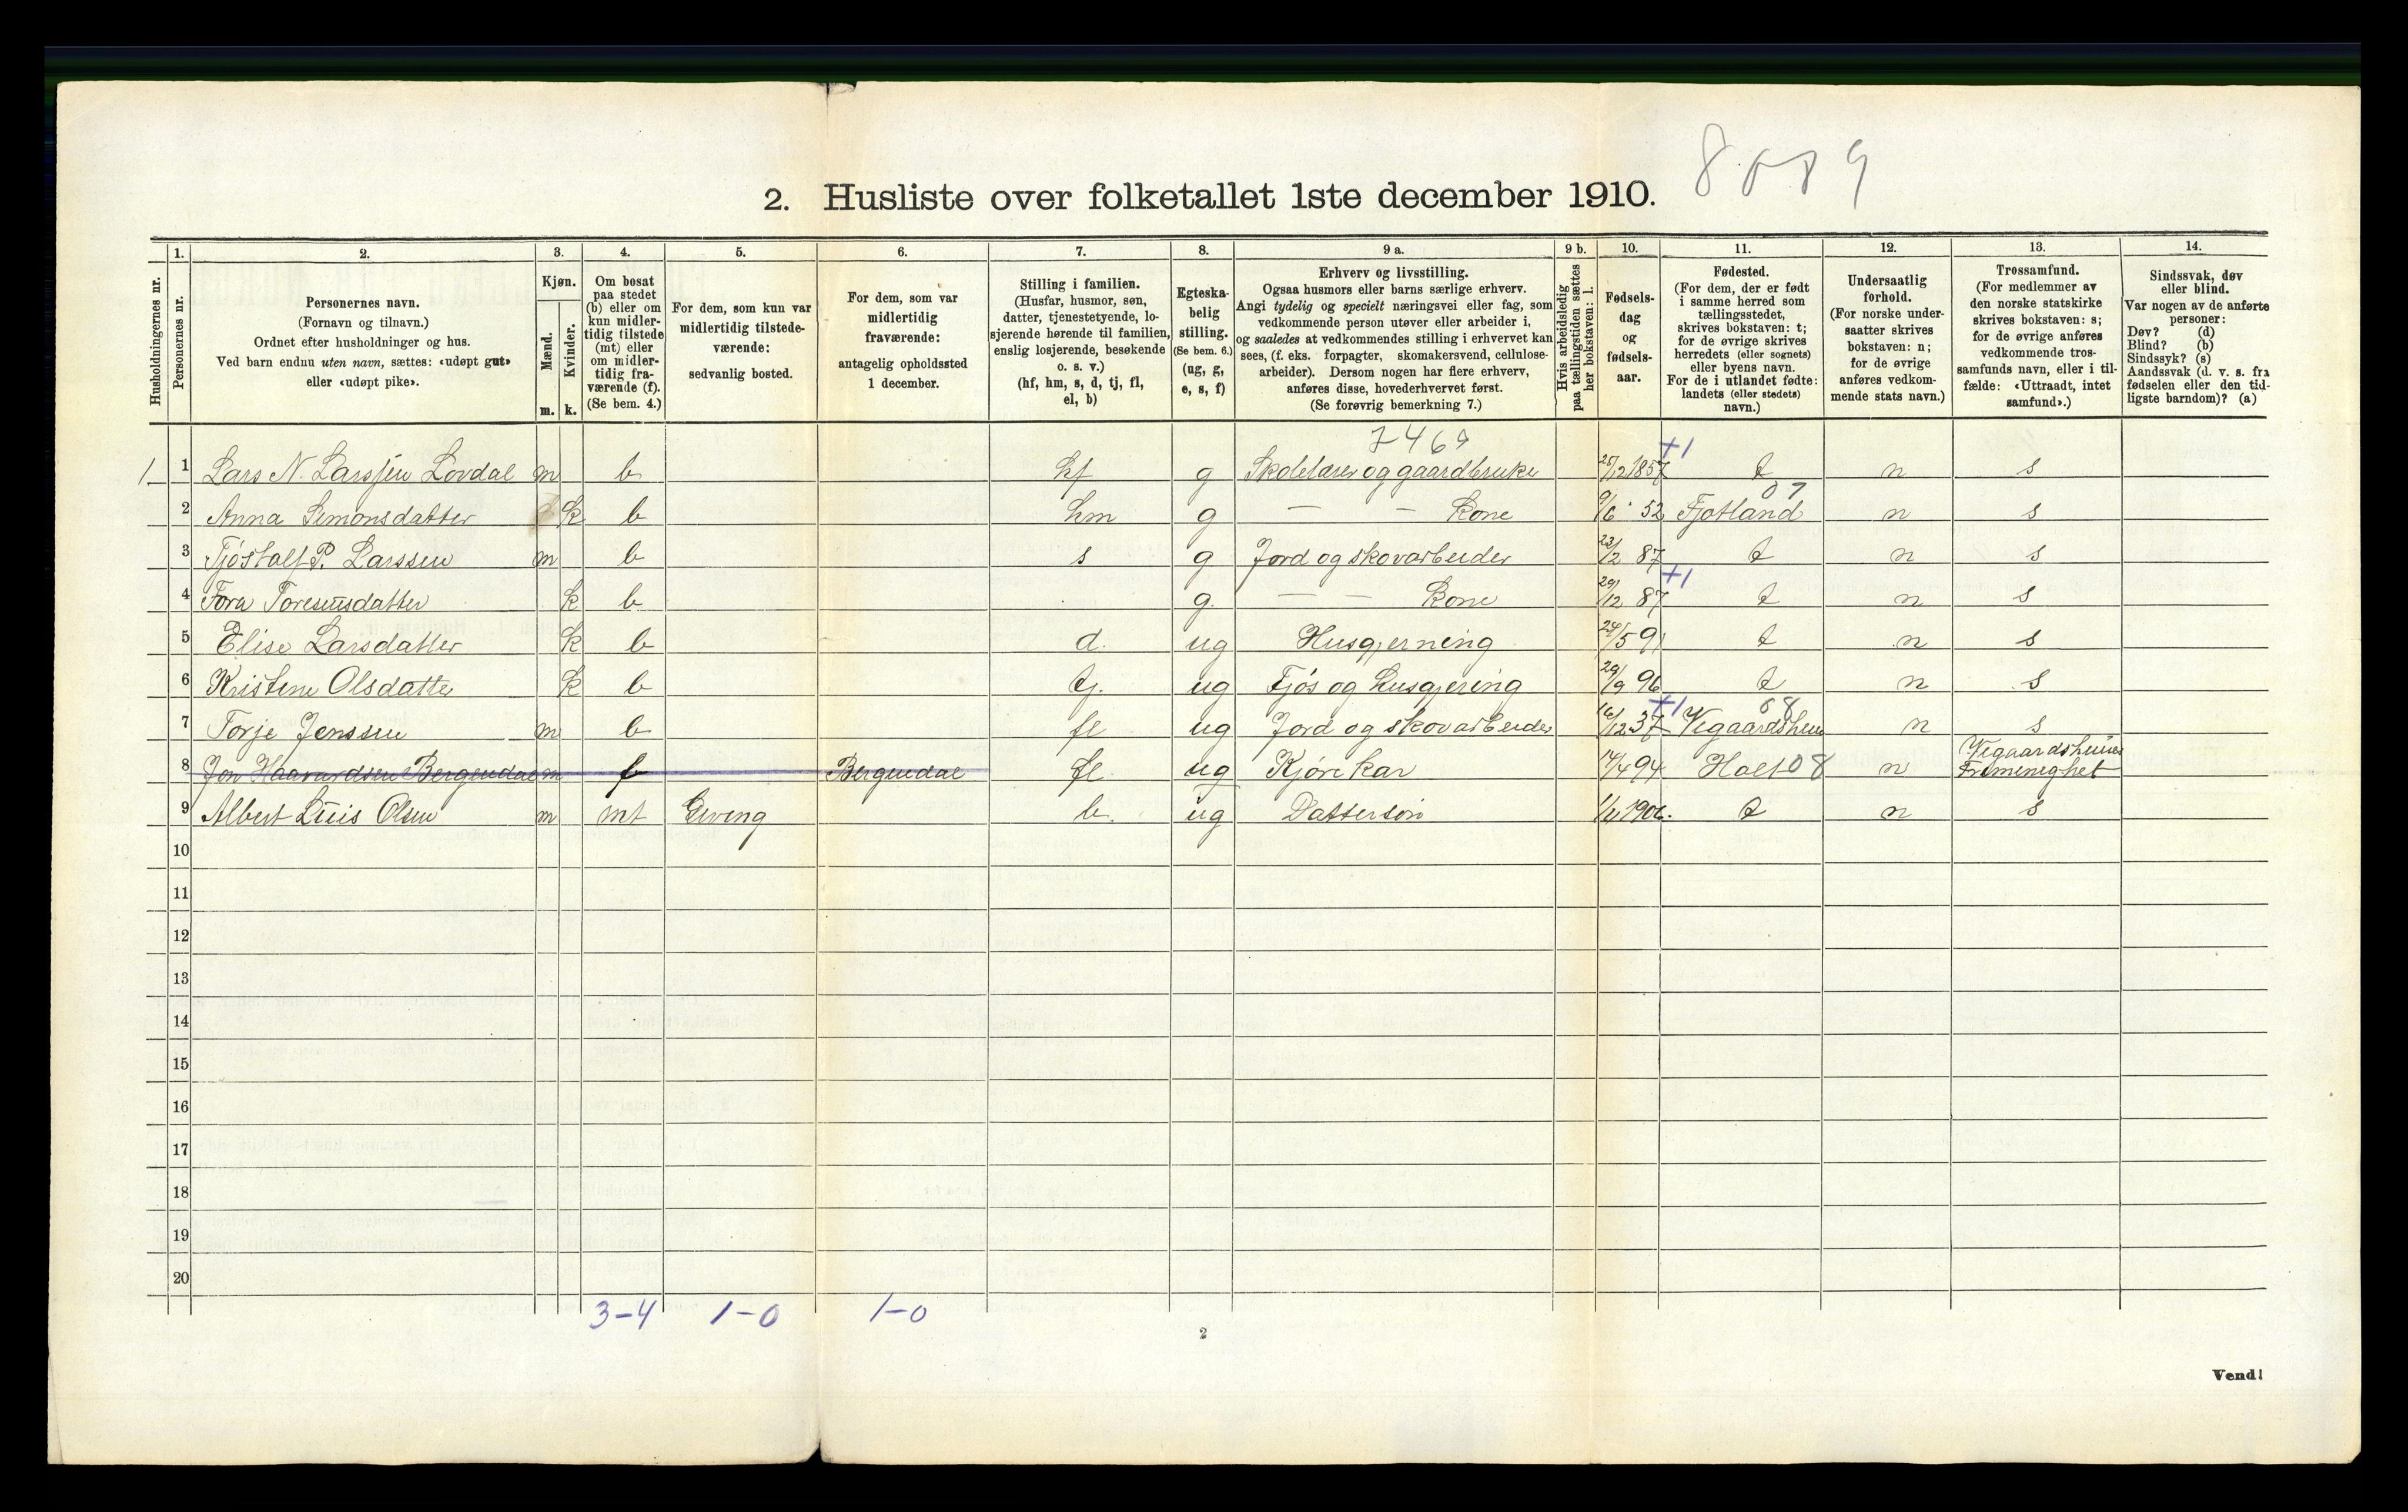 8089
2. Husliste over folketallet 1ste december 1910.
Husholdningernes nr.
1. Personernes nr.
2. Personernes navn.
(Fornavn og tilnavn.)
Ordnet efter husholdninger og hus.
Ved barn endnu uten navn, sættes: «udøpt gut»
eller «udøpt pike».
3. Kjøn.
Mænd. m.
Kvinder. k.
4. Om bosat
paa stedet
(b) eller om
kun midler-
tidig tilstede
(mt) eller
om midler-
tidig fra-
værende (f).
(Se bem. 4.)
5. For dem, som kun var
midlertidig tilstede-
værende:
sedvanlig bosted.
6. For dem, som var
midlertidig
fraværende:
antagelig opholdssted
1 december.
7. Stilling i familien.
(Husfar, husmor, søn,
datter, tjenestetyende, lo-
sjerende hørende til familien,
enslig losjerende, besøkende
o. s. v.)
(hf, hm, s, d, tj, fl,
el, b)
8. Egteska-
belig
stilling.
(Se bem. 6.)
(ug, g,
e, s, f)
9 a. Erhverv og livsstilling.
Ogsaa husmors eller barns særlige erhverv.
Angi tydelig og specielt næringsvei eller fag, som
vedkommende person utøver eller arbeider i,
og saaledes at vedkommendes stilling i erhvervet kan
sees, (f. eks. forpagter, skomakersvend, cellulose-
arbeider). Dersom nogen har flere erhverv,
anføres disse, hovederhvervet først.
(Se forøvrig bemerkning 7.)
9 b. Hvis arbeidsledig
paa tællingstiden sættes
her bokstaven: l.
10. Fødsels-
dag
og
fødsels-
aar.
11. Fødested.
(For dem, der er født
i samme herred som
tællingsstedet,
skrives bokstaven: t;
for de øvrige skrives
herredets (eller sognets)
eller byens navn.
For de i utlandet fødte:
landets (eller stedets)
navn.)
12. Undersaatlig
forhold.
(For norske under-
saatter skrives
bokstaven: n;
for de øvrige
anføres vedkom-
mende stats navn.)
13. Trossamfund.
(For medlemmer av
den norske statskirke
skrives bokstaven: s;
for de øvrige anføres
vedkommende tros-
samfunds navn, eller i til-
fælde: «Uttraadt, intet
samfund».)
14. Sindssvak, døv
eller blind.
Var nogen av de anførte
personer:
Døv? (d)
Blind? (b)
Sindssyk? (s)
Aandssvak (d. v. s. fra
fødselen eller den tid-
ligste barndom)? (a)
+1
1 1 Lars N. Larssen Lovdal m b hf g Skolelærer og gaardbruker 1857 t n s
07
2 Anna Simonsdatter k b hm g — — Kone 9/6 52 Fjotland n s
3 Tjöstalf P. Larssen m b s g Jord og skovarbeider 23/2 87 t n s
+1
4 Tora Toresensdatter k b g. — — Kone 29/12 87 t n s
5 Elise Larsdatter k b d. ug Husgjerning 24/5 91 t n s
6 Kristine Olsdatter k b tj. ug Fjøs og husgjering 29/9 96 t n s
+1 68
7 Torje Jenssen m b fl ug Jord og skovarbeider 16/12 37 Vegaardshei n s
8 Jon Haavardsen Bergendal m f Bergendal fl ug Kjørekar 14/4 94 Holt 08 n Vegaardsheiens
Frimenighet
9 Albert Luis Olsen m mt Geving b. ug Dattersön 1906. t n s
10
11
12
13
14
15
16
17
18
19
20
3–4 1–0 1–0
2
Vend!